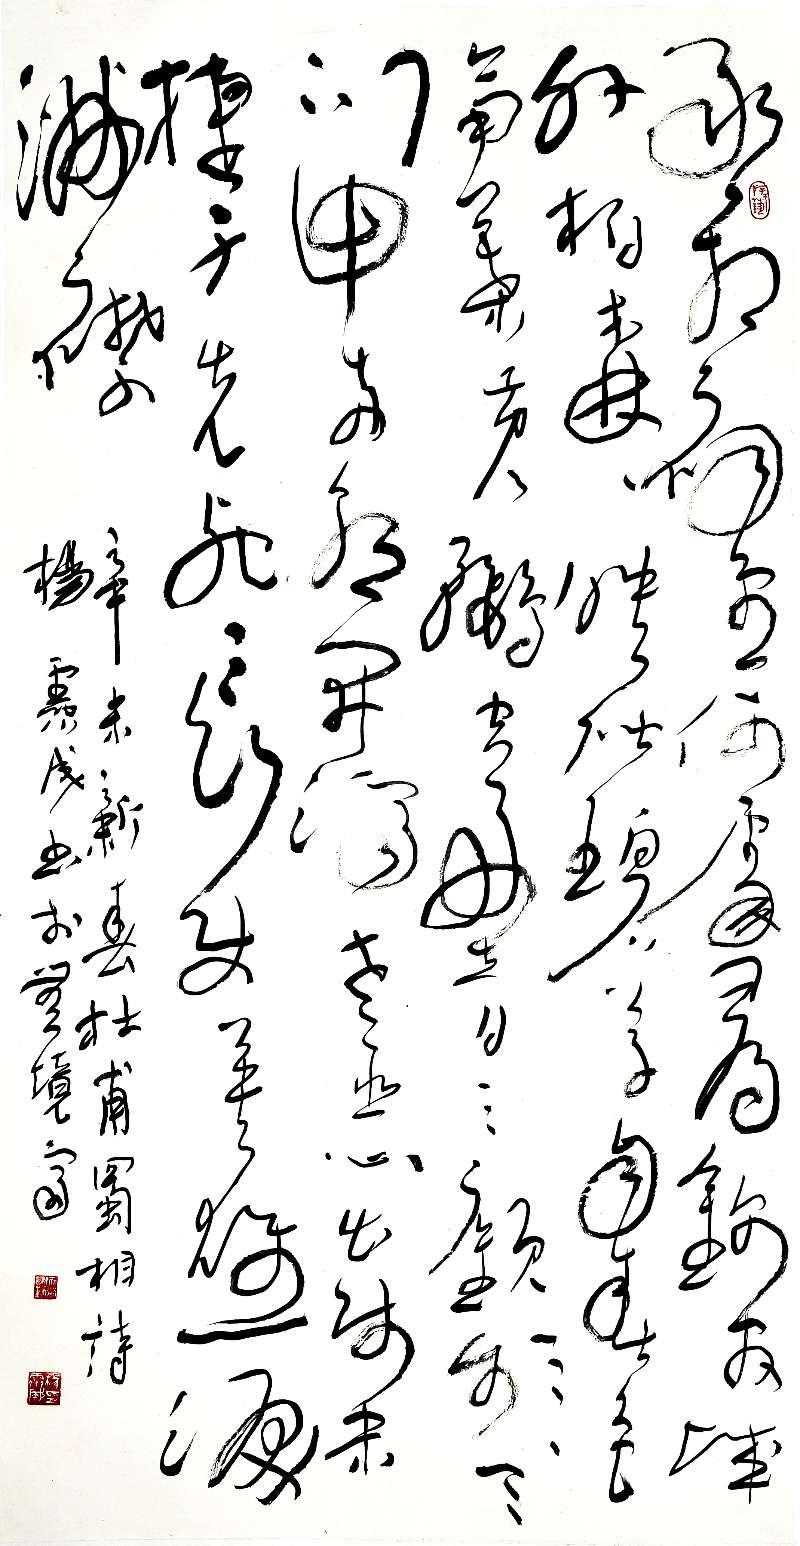 丞相祠堂何處尋錦官城
外柏森森映階碧草自春色
隔葉黃鸝空好音三顧頻煩天
下計兩朝開濟老臣心出師未
捷身先死長使英雄淚
滿襟
辛未新春杜甫蜀相詩
楊成書於無境齋